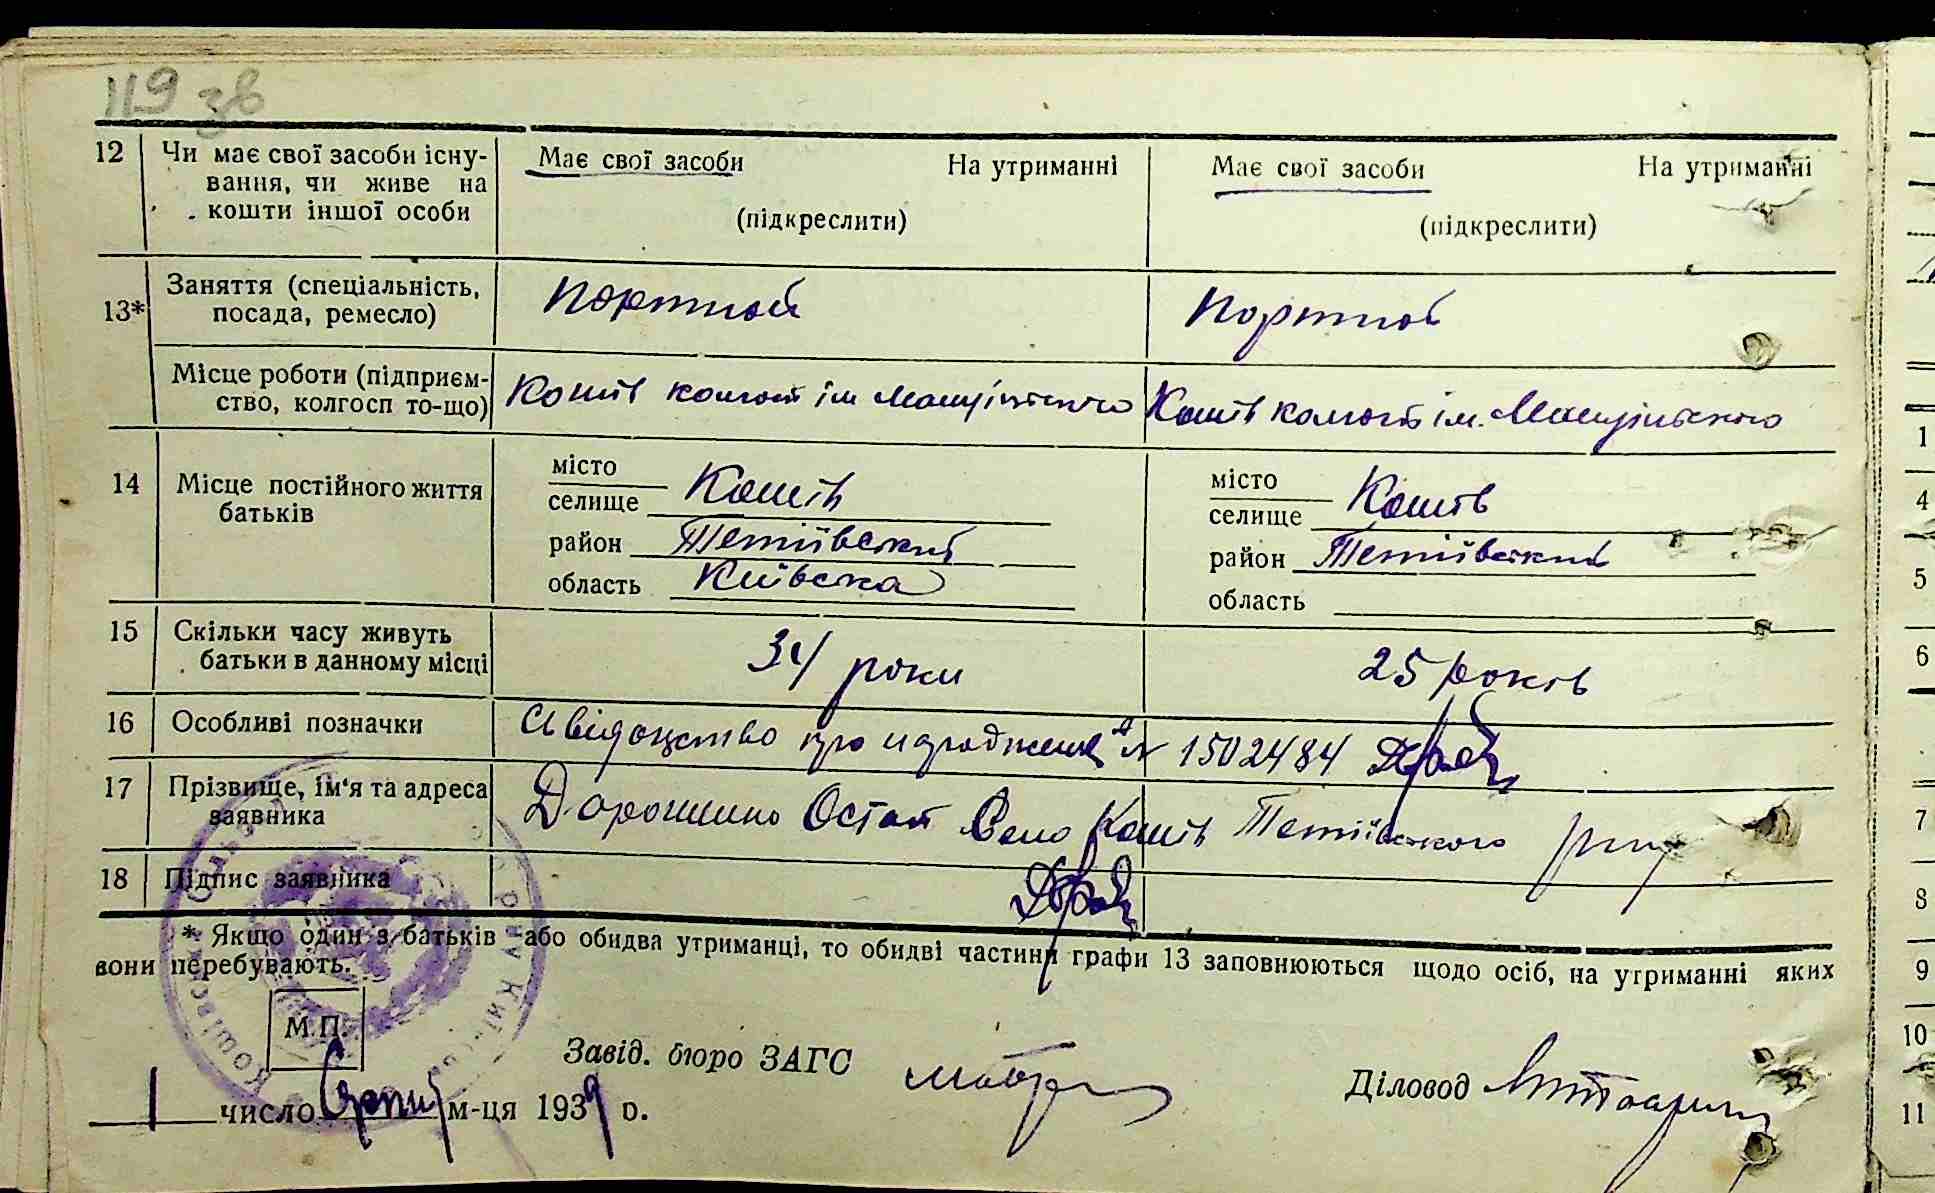 119 зв
12 Чи має свої засоби існу- Має свої засоби На утриманні Має свої засоби На утриманні
вання, чи живе на
кошти іншої особи (підкреслити) (підкреслити)
13* Заняття (спеціальність, Портной Портной
посада, ремесло)
Місце роботи (підприєм- Кошів колгосп ім Мануїльського Кошів колгосп ім. Мануїльського
ство, колгосп то-що)
14 Місце постійного життя місто Кошів місто Кошів
батьків селище селище
район Тетіївський район Тетіївський
область Київска область
15 Скільки часу живуть 34 роки 25 років
батьки в данному місці
16 Особливі позначки Свідоцтво про народження № 1502484
17 Прізвище, ім'я та адреса Остап Село Кошів Тетіївського р-ну
заявника
18 Підпис заявника
* Якщо один з батьків або обидва утриманці, то обидві частини графи 13 заповнюються щодо осіб, на утриманні яких
вони перебувають.
М.П.
Завід. бюро ЗАГС
Діловод
1 число м-ця 1939 р.
1
4
5
6
7
8
9
10
11